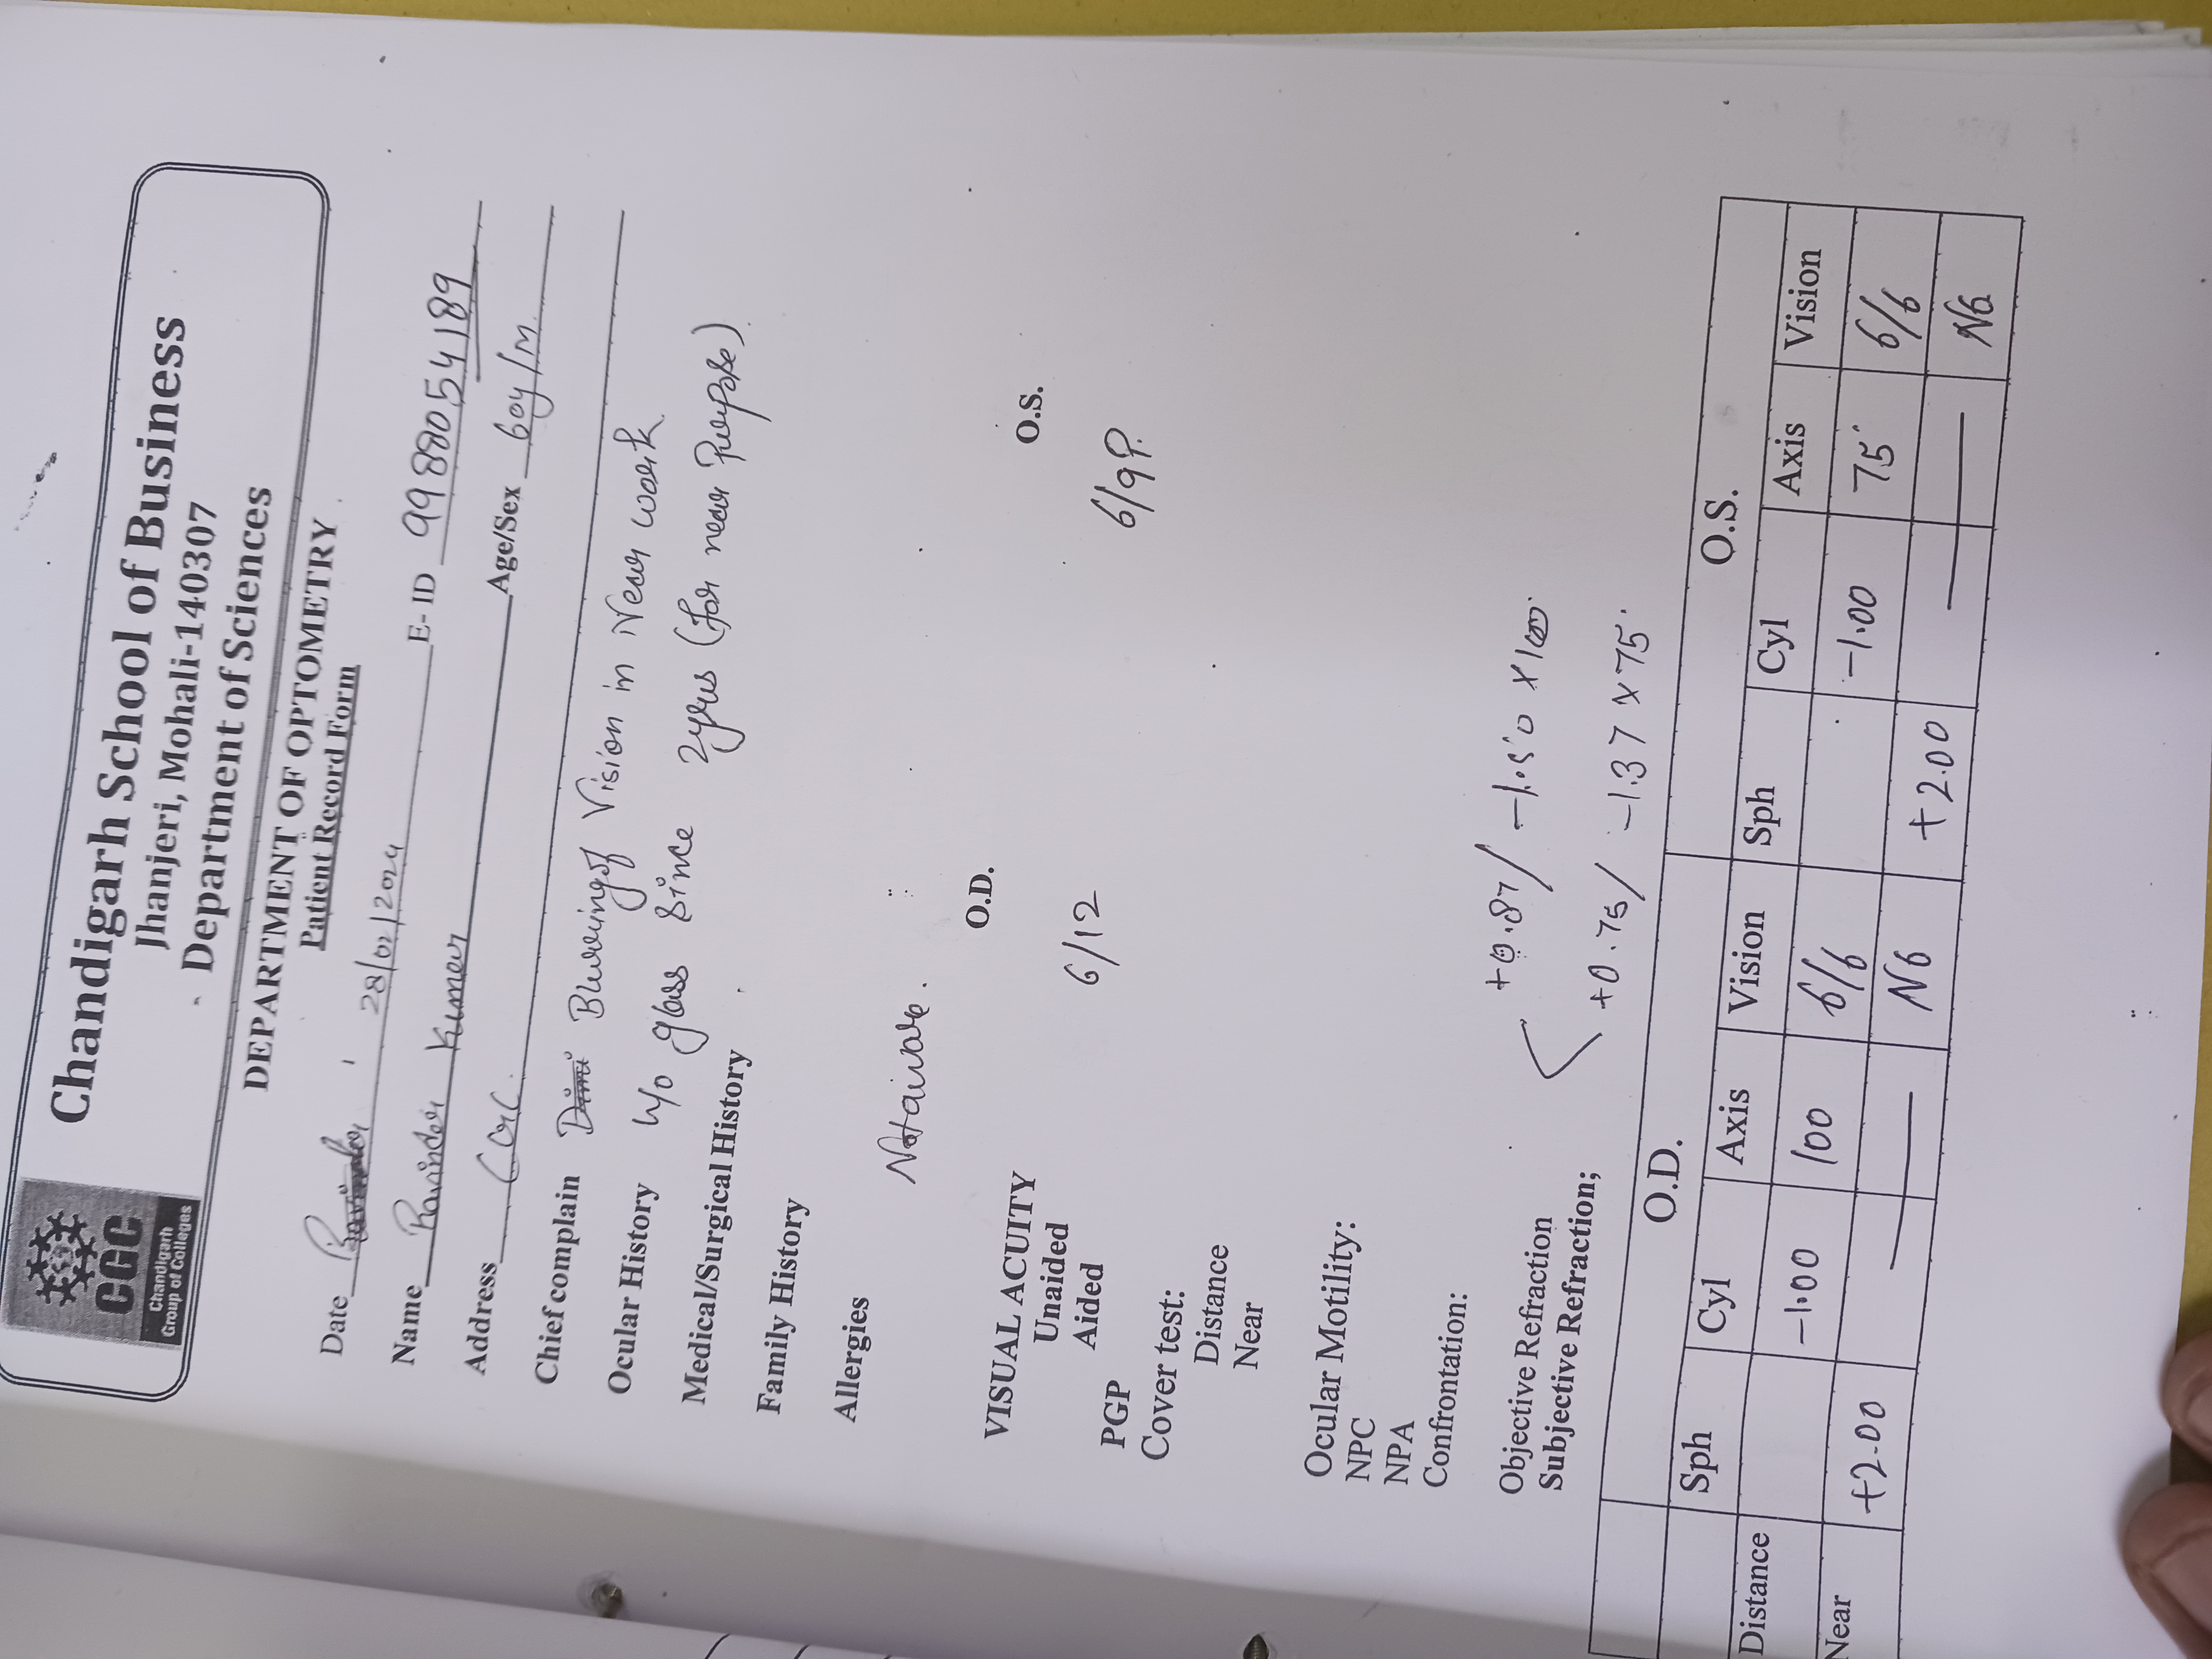 CGC
Chandigarh
Group of Colleges
Chandigarh School of Business
Jhanjeri, Mohali-140307
Department of Sciences
DEPARTMENT OF OPTOMETRY
Patient Record Form
Date 28/02/2024 E- ID 9988054189
Name Ravinder Kumar Age/Sex 60y/M
Address CGC
Chief complain Blurring of Vision in Near work
Ocular History H/o glass since 2 years (for near Purpose)
Medical/Surgical History
Family History
Allergies Not aware.
O.D. O.S.
VISUAL ACUITY
Unaided 6/12 6/9P
Aided
PGP
Cover test:
Distance
Near
Ocular Motility:
NPC
NPA
Confrontation:
Objective Refraction +0.87 / -1.50 x 100
Subjective Refraction; +0.75 / -1.37 x 75°
O.D. O.S.
Sph Cyl Axis Vision Sph Cyl Axis Vision
Distance -1.00 100 6/6 -1.00 75° 6/6
Near +2.00 — N6 +2.00 — N6